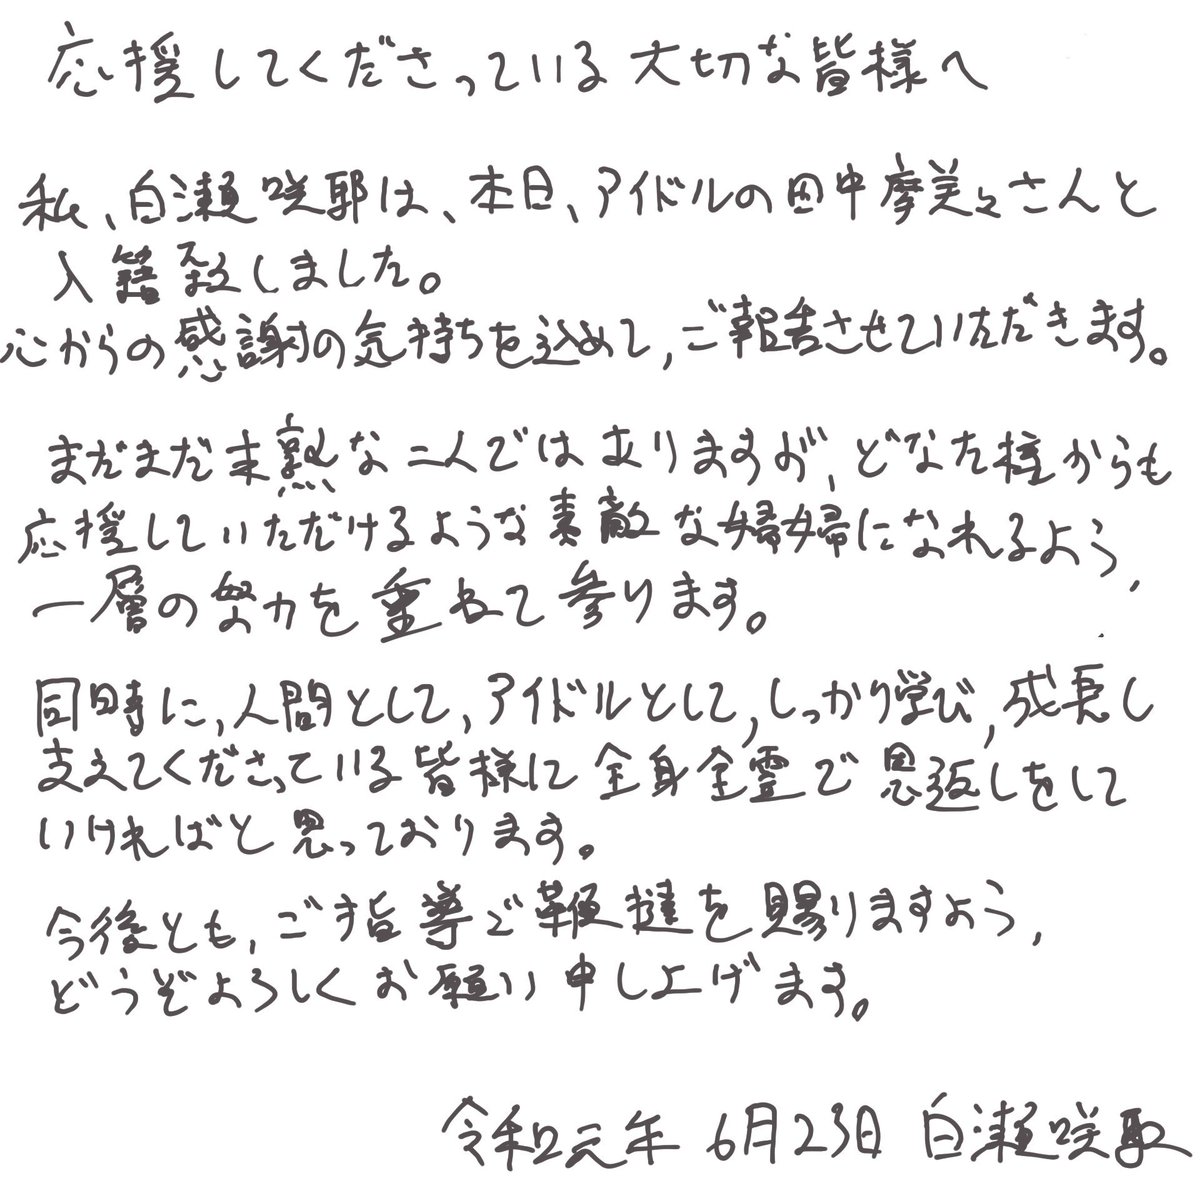 応援してくださっている大切な皆様へ
私、白瀬咲耶は、本日、アイドルの田中摩美々さんと
入籍致しました。
心からの感謝の気持ちを込めて,ご報告させていただきます。
まだまだ未熟な二人ではありますが,どなた様からも
応援していただけるような素敵な婦婦になれるよう,
一層の努力を重ねて参ります。
同時に,人間として,アイドルとして,しっかり学び,成長し
支えてくださっている皆様に全身全霊で恩返しをして
いければと思っております。
今後とも,ご指導ご鞭撻を賜りますよう,
どうぞよろしくお願い申し上げます。
令和元年 6月23日 白瀬咲耶